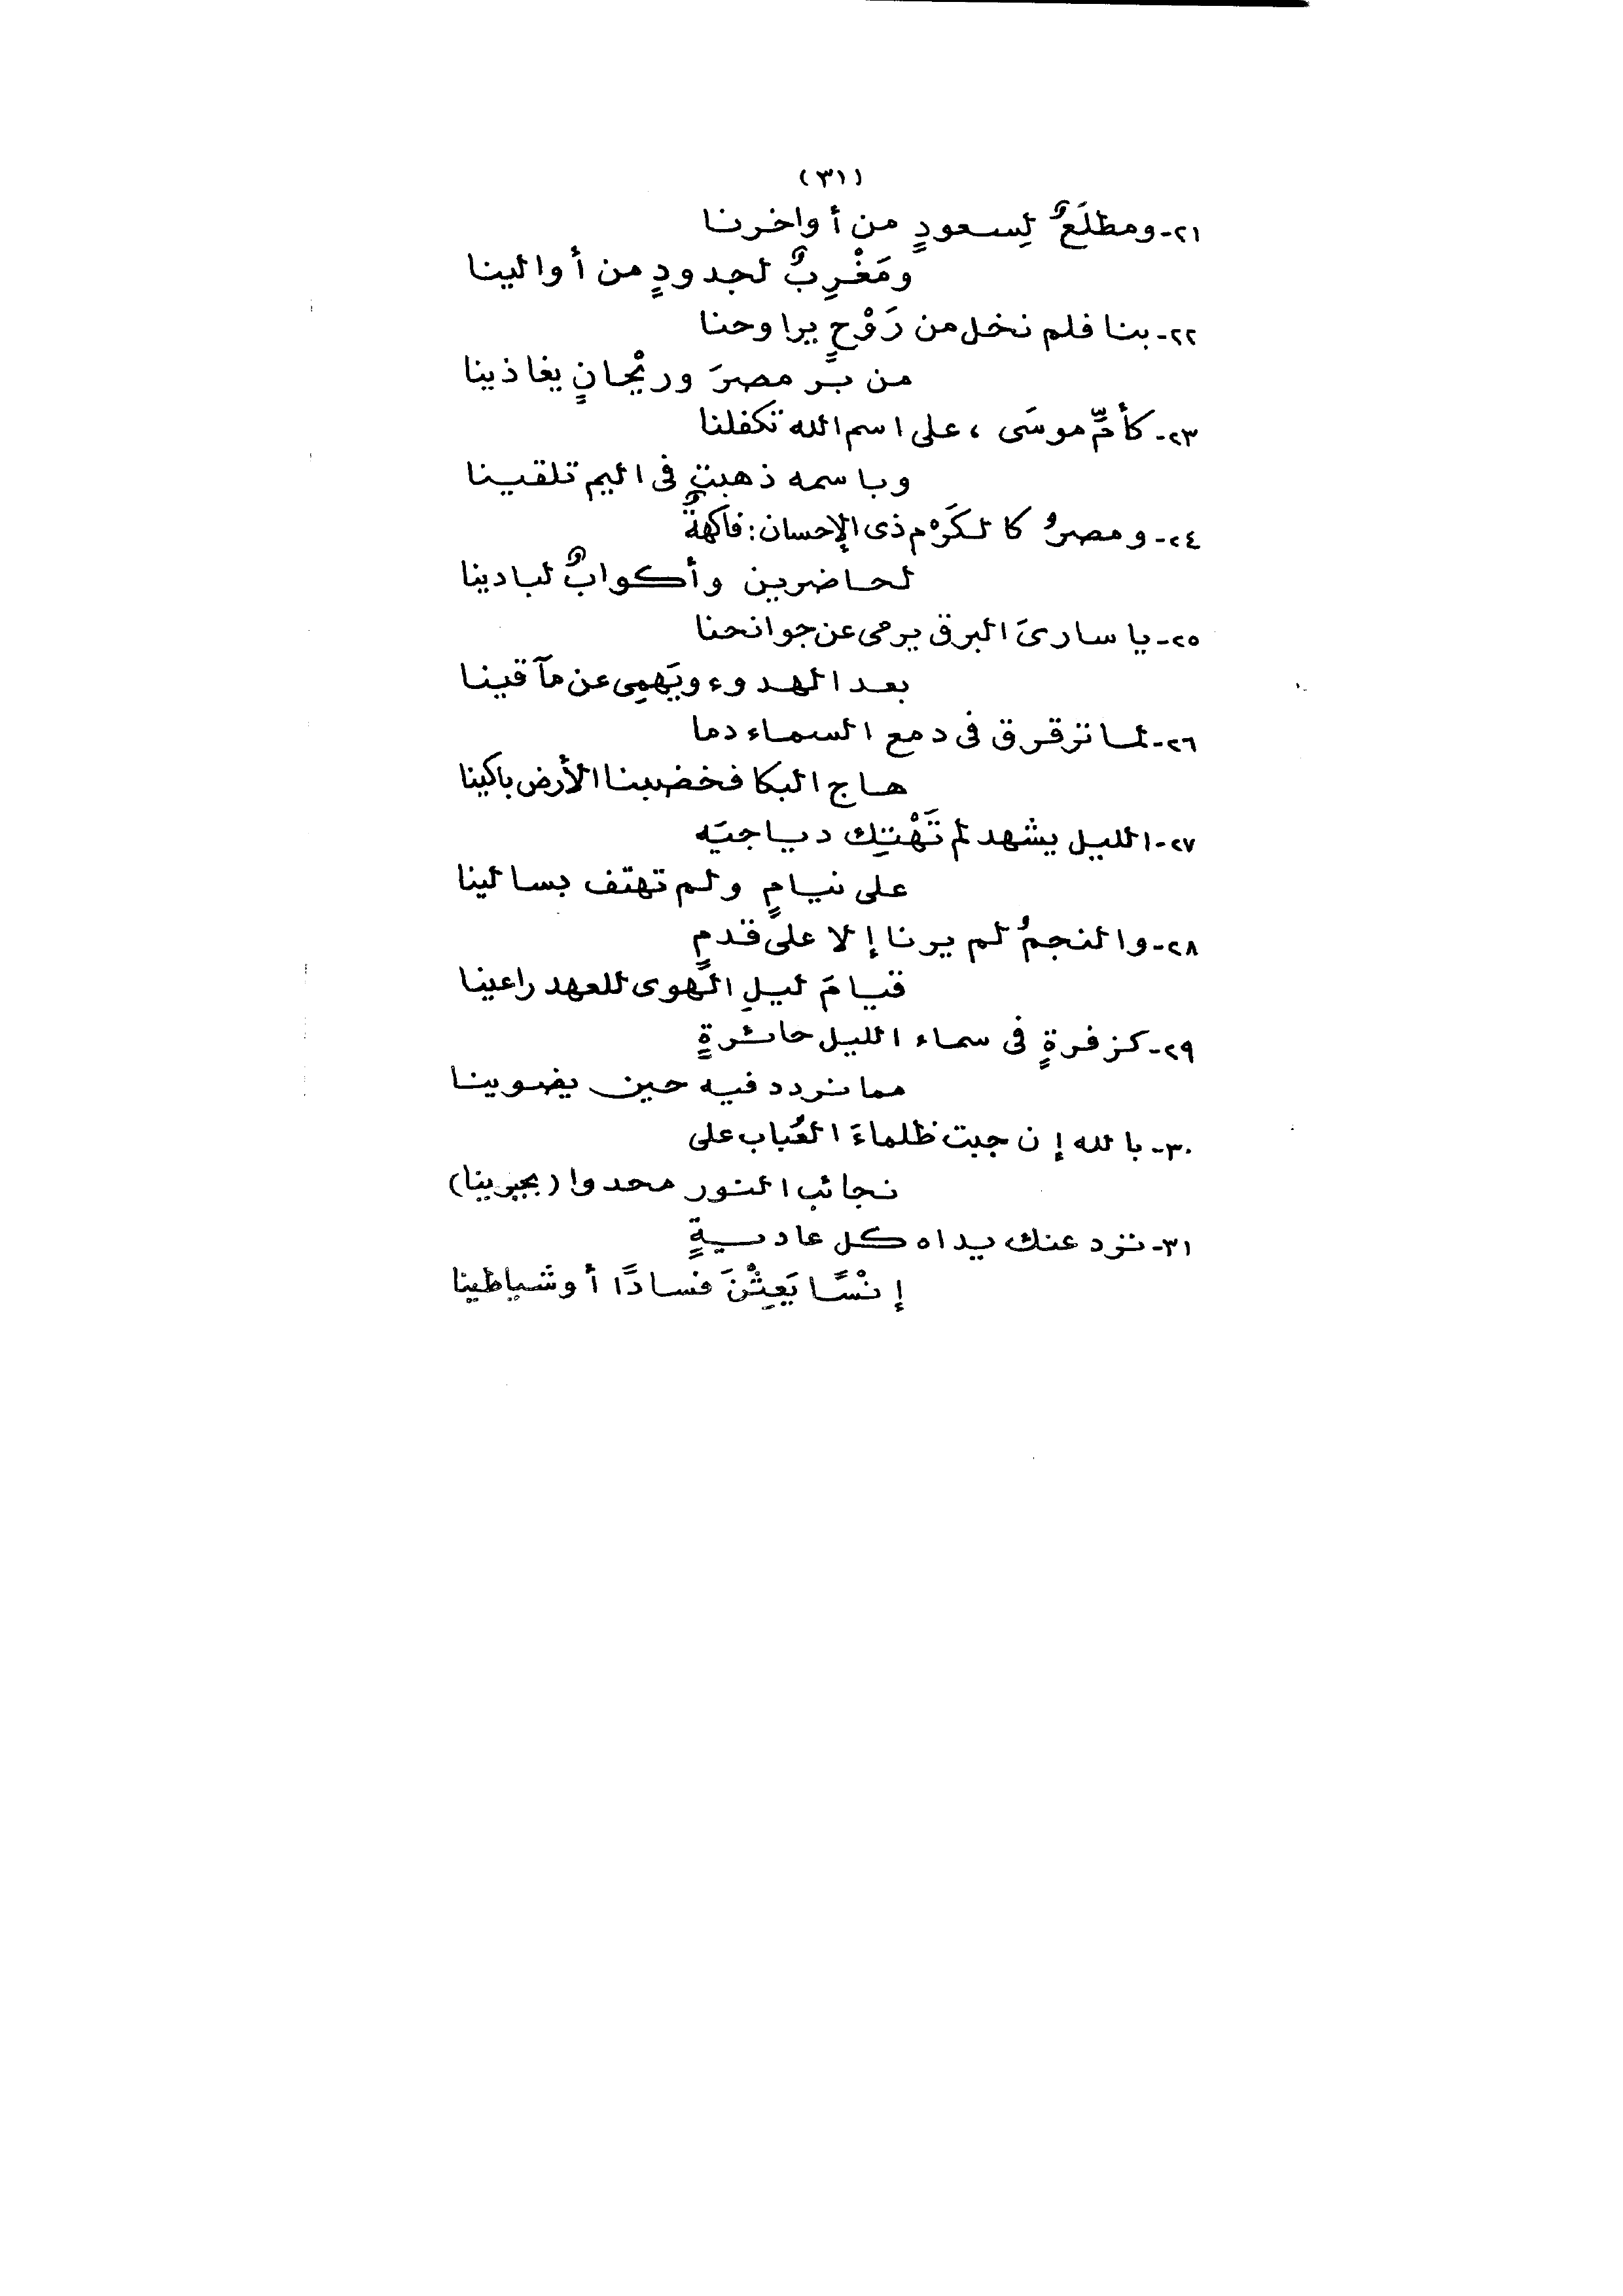 (٣١)
٢١- ومطلَعٌ لِسعودٍ من أواخرنا
ومَغْرِبٌ لجدودٍ من أوالينا
٢٢- بنا فلم نخل من رَوْحٍ يراوحنا
من بَر مصرَ وريْحانٍ يغاذينا
٢٣- كأمِّ موسَى ، على اسم الله تكفلنا
وباسمه ذهبت فى اليم تلقينا
٢٤- ومصرُ كالكَرْم ذى الإحسان : فاكهةٌ
لحاضرين وأكوابٌ لبادينا
٢٥- يا سارىَ البرق يرمى عن جوانحنا
بعد الهدوء ويَهمِى عن مآقينا
٢٦- لما ترقرق فى دمع السماء دما
هاج البكا فخضبنا الأرض باكينا
٢٧- الليل يشهد لم تَهْتِك دياجيَه
على نيامٍ ولم تهتف بسالينا
٢٨- والنجمُ لم يرنا إلا على قدمٍ
قيامَ ليلِ الهَوى للعهد راعينا
٢٩- كزفرةٍ فى سماء الليل حائرةٍ
مما نردد فيه حين يضوينا
٣٠- بالله إن جبت ظلماءَ العُباب على
نجائب النور محدوا (بجبرينا)
٣١- تزد عنك يداه كل عاديةٍ
إنْسًا يَعِثْنَ فسادًا أو شياطينا